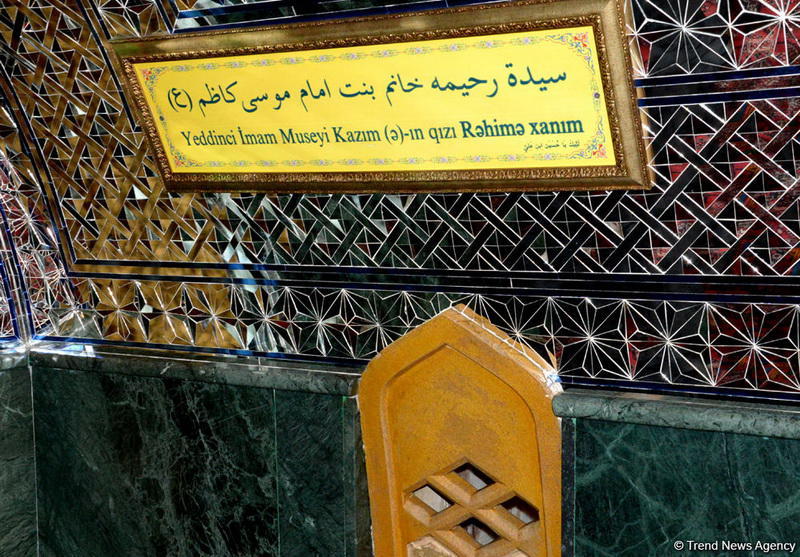 سيدة رحيمه خانم بنت امام موسى كاظم (ع)
Yeddinci İmam Museyi Kazım (ə)-ın qızı Rəhimə xanım
لبيك يا حسين ابن علي
© Trend News Agency